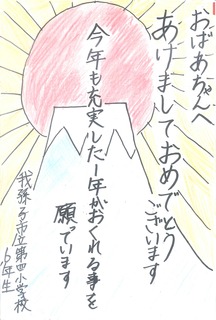 おばあちゃんへ
あけましておめでとう
ございます
今年も充実した一年がおくれる事を
願っています
我孫子市立第四小学校
6年生